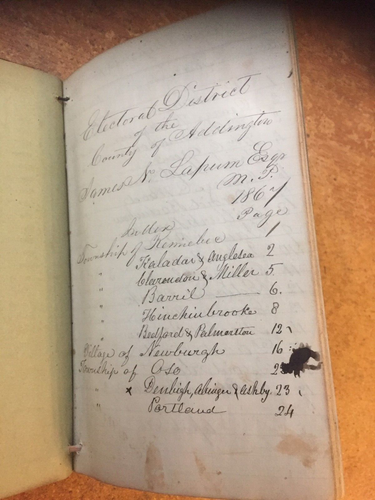 Electoral District
of the
County of Addington
James N. Lapum Esqr
M.P.
1867
Index Page
Township of Kennebec 1
" Kaladar & Anglesea 2
" Clarendon & Miller 5
" Barrie — 6.
" Hinchinbrooke 8
" Bedford & Palmerston 12
Village of Newburgh 16
Township of Oso
" x Denbigh, Abinger & Ashby. 23
" Portland 24